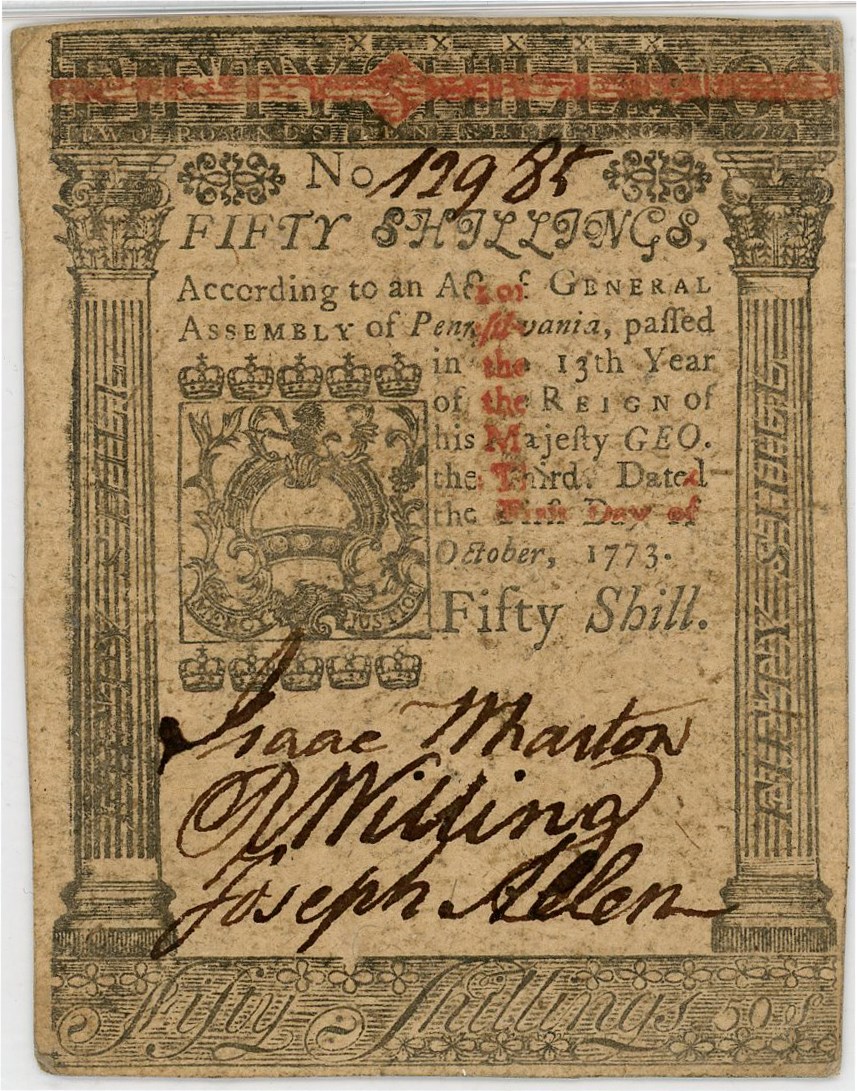 X X X X X
FIFTY SHILLINGS
TWO POUNDS TEN SHILLINGS
No 12985
FIFTY SHILLINGS,
According to an Act of GENERAL
ASSEMBLY of Pennsylvania, paſſed
in the 13th Year
of the REIGN of
his Majeſty GEO.
the Third. Dated
the Firſt Day of
October, 1773.
MERCY JUSTICE
Fifty Shill.
Isaac Wharton
R Willing
Joseph Allen
FIFTY SHILL
FIFTY SHILL
Fifty Shillings 50s